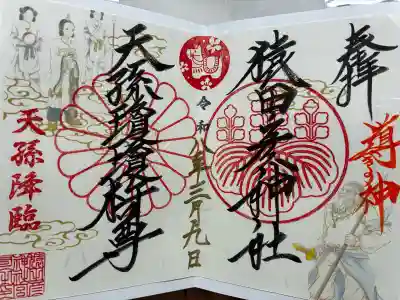 奉拝
導きの神
猿田彦神社
令和八年三月九日
天孫瓊瓊杵尊
天孫降臨